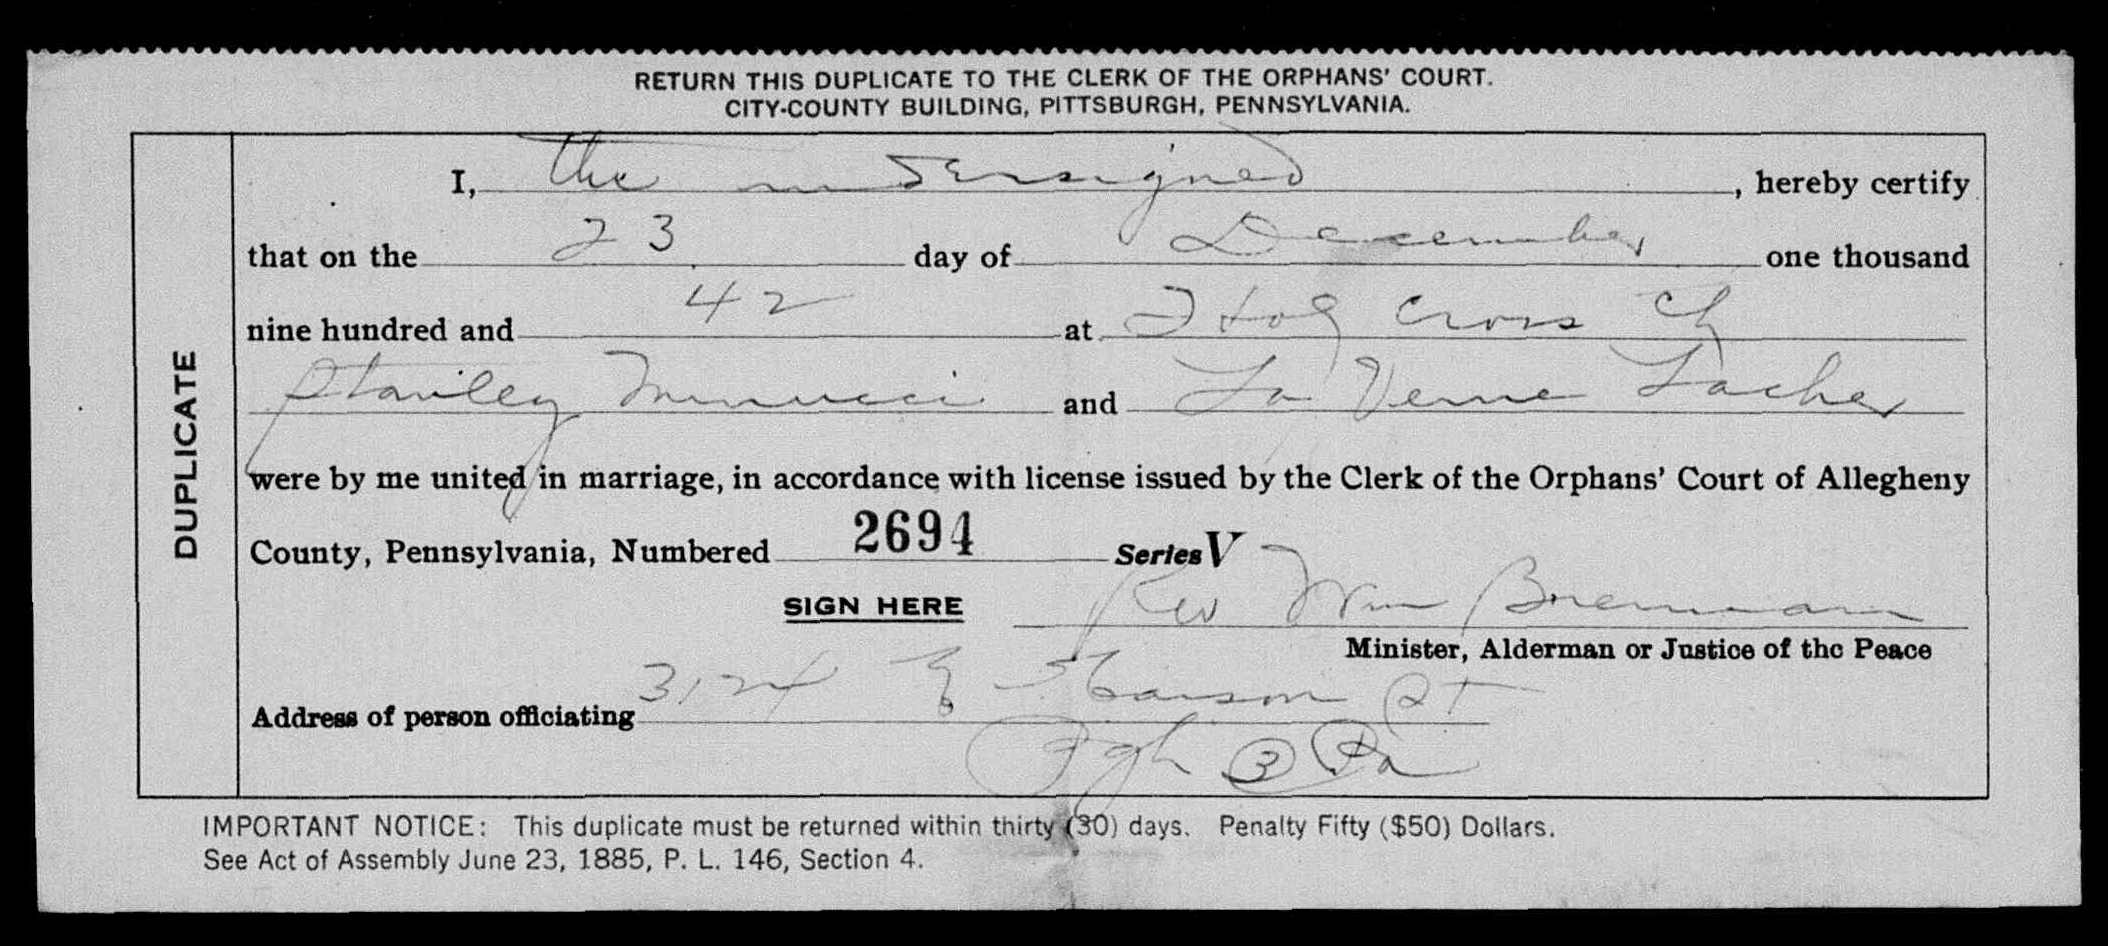 RETURN THIS DUPLICATE TO THE CLERK OF THE ORPHANS' COURT.
CITY-COUNTY BUILDING, PITTSBURGH, PENNSYLVANIA.
DUPLICATE
I, the undersigned, hereby certify
that on the 23 day of December one thousand
nine hundred and 42 at Holy Cross Ch
Stanley Minucci and La Verne Lacher
were by me united in marriage, in accordance with license issued by the Clerk of the Orphans' Court of Allegheny
County, Pennsylvania, Numbered 2694 Series V
SIGN HERE Rev Wm Brennan
Minister, Alderman or Justice of the Peace
Address of person officiating 3124 St
Pgh 3 Pa
IMPORTANT NOTICE: This duplicate must be returned within thirty (30) days. Penalty Fifty ($50) Dollars.
See Act of Assembly June 23, 1885, P. L. 146, Section 4.